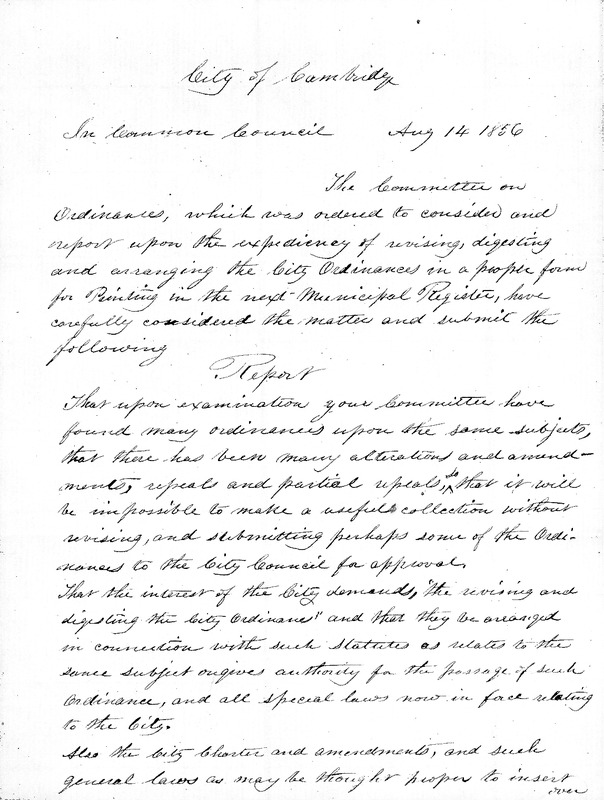 City of Cambridge
In Common Council Aug 14 1856
The Committee on
Ordinances, which was ordered to consider and
report upon the expediency of revising, digesting
and arranging the City Ordinances in a proper form
for Printing in the next Municipal Register, have
carefully considered the matter and submit the
following
Report
That upon examination your Committee have
found many ordinances upon the same subjects,
that there has been many alterations and amend-
ments, repeals and partial repeals, so that it will
be impossible to make a useful collection without
revising, and submitting perhaps some of the Ordi-
nances to the City Council for approval.
That the interest of the City demands, "the revising and
digesting the City Ordinances" and that they be arranged
in connection with such Statutes as relates to the
same subject or gives authority for the passage of such
Ordinance, and all special laws now in force relating
to the City.
Also the City Charter and amendments, and such
general laws as may be thought proper to insert
over